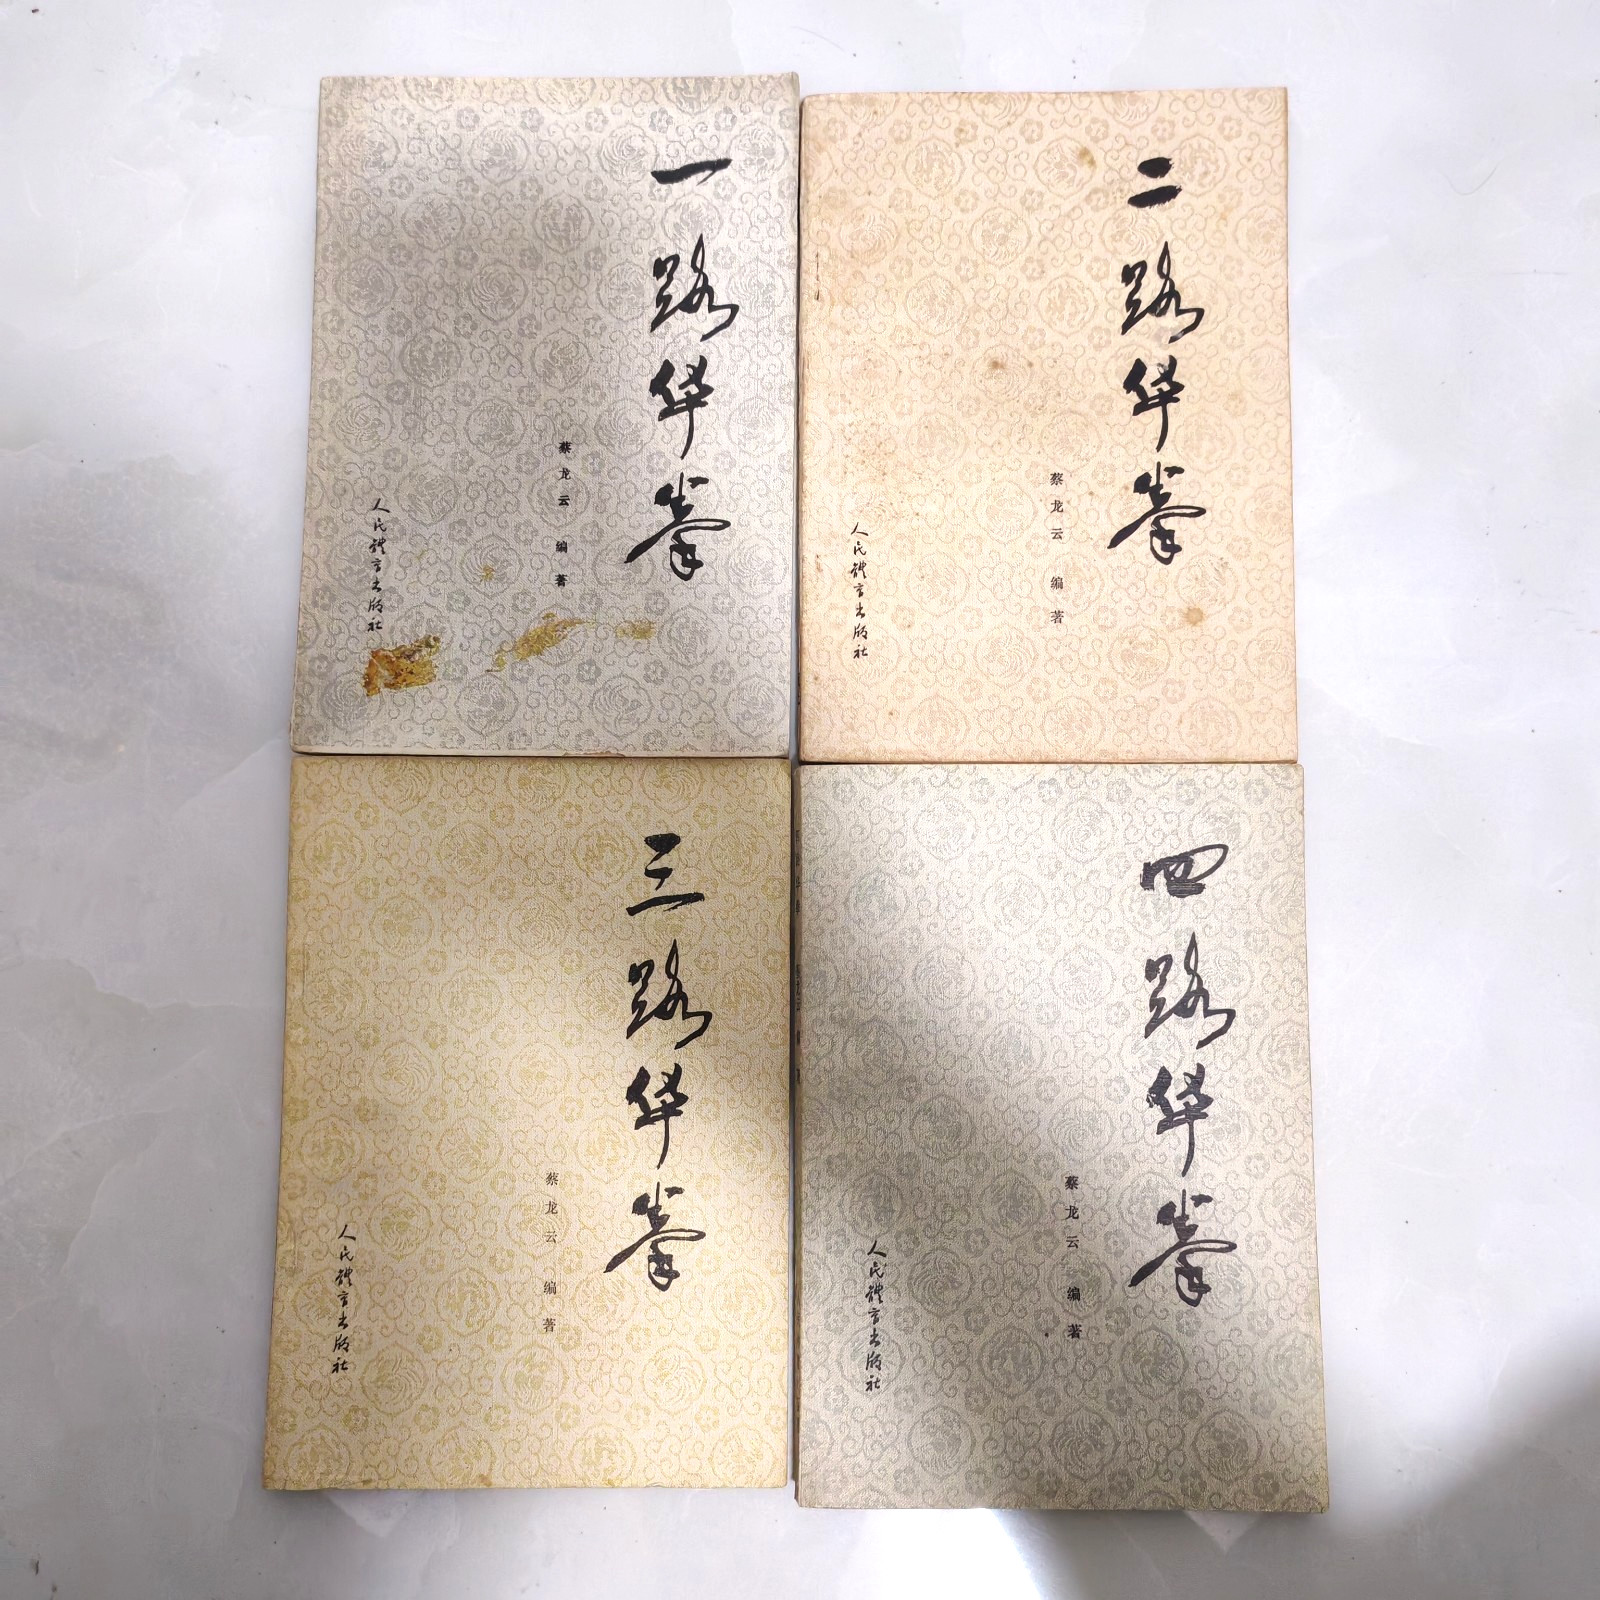 一路华拳
蔡龙云 编著
人民體育出版社
二路华拳
蔡龙云 编著
人民體育出版社
三路华拳
蔡龙云 编著
人民體育出版社
四路华拳
蔡龙云 编著
人民體育出版社